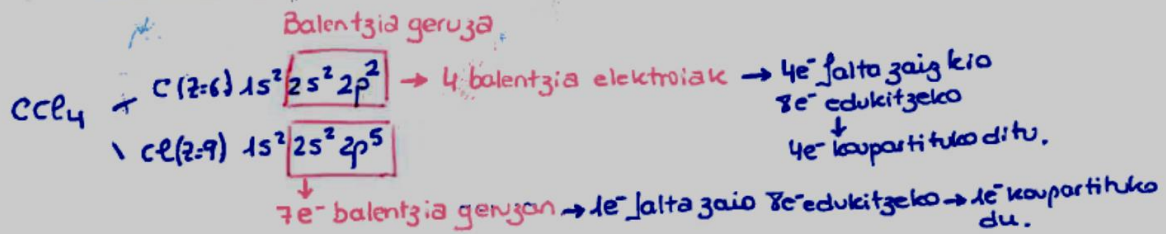 Balentzia geruza.
CCl₄
C(z=6) 1s² 2s² 2p² → 4 balentzia elektroiak → 4e⁻ falta zaizkio
8e⁻ edukitzeko
↓
4e⁻ konpartituko ditu.
Cl(z=9) 1s² 2s² 2p⁵
↓
7e⁻ balentzia geruzan → 1e⁻ falta zaio 8e⁻ edukitzeko → 1e⁻ konpartituko
du.